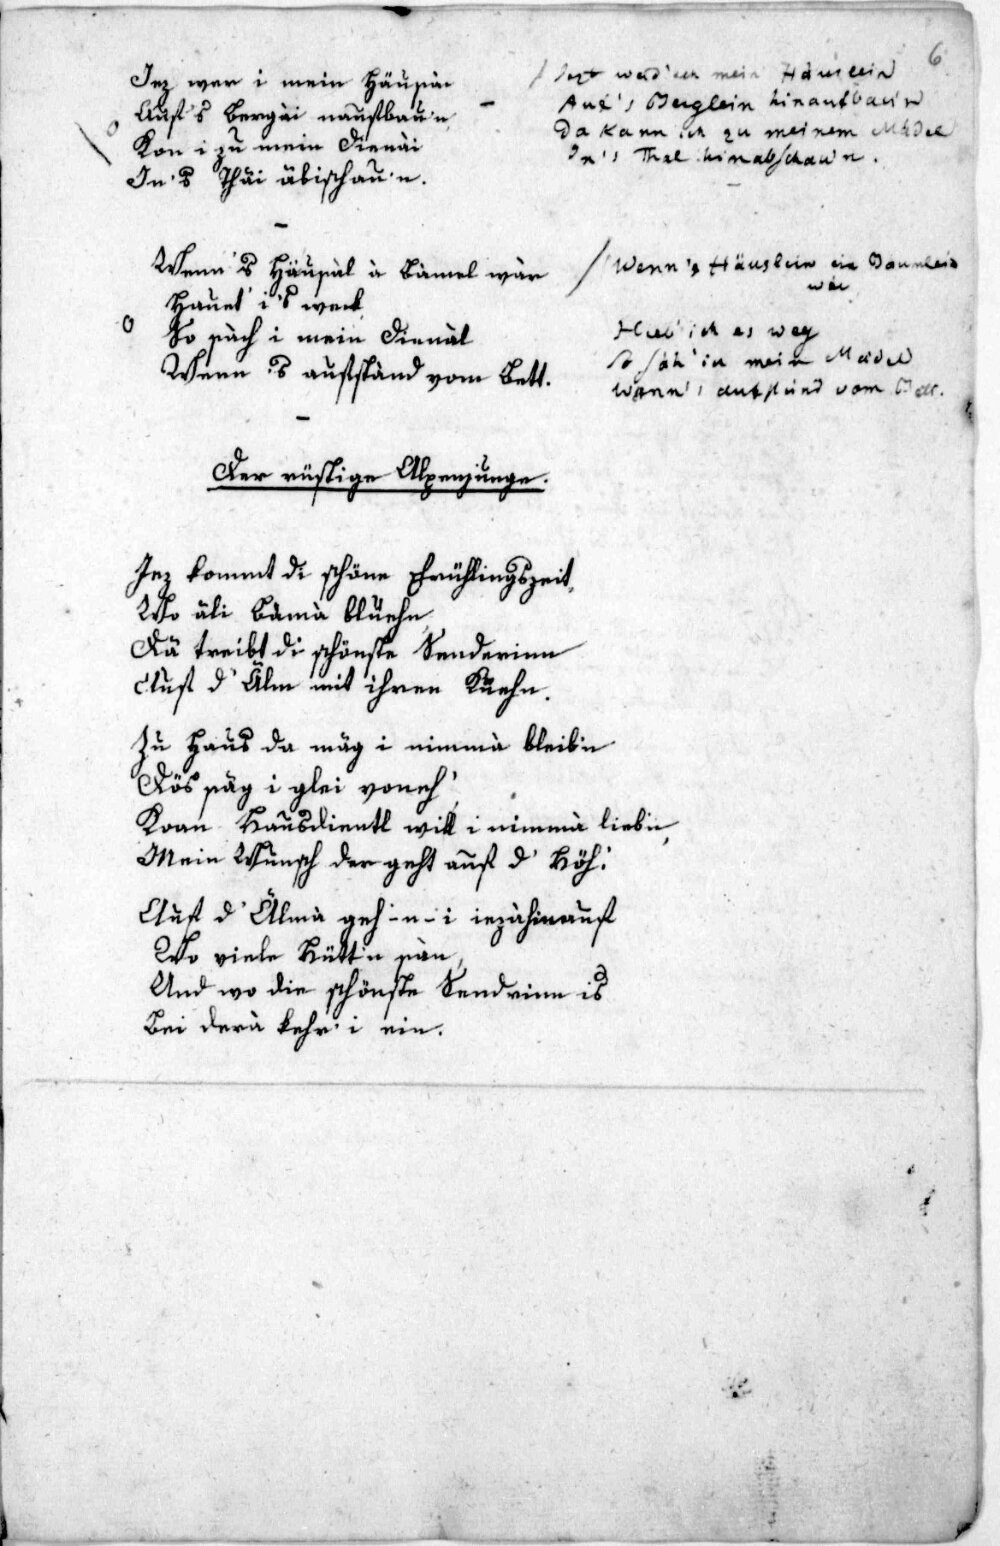 6
Jez wer i mein Häusäi
Auf's Bergäi naufbau'n,
Kon i zu mein Dienäi
In's Thäi äbischau'n.
Jezt werd' ich mein Häuslein
Auf's Berglein hinaufbau'n
Da kann ich zu meinem Mädel
In's Thal hinabschau'n.
Wenn's Häusàl à Bàmel wär
Hauet' i's weck,
So sàch i mein Dienàl
Wenn's aufständ vom Bett.
Wenn's Häuslein ein Bäumlein
wär
Hieb' ich es weg
So säh' ich mein Mädel
Wenn's aufstünd vom Bett.
Der rüstige Alpenjunge.
Jez kommt di schöne Frühlingszeit,
Wo äli Bàmà blüehn,
Dä treibt di schönste Senderinn
Auf d' Älm mit ihren Küehn.
Zu Haus da mäg i nimmà bleib'n
Dös säg i glei voneh',
Koan Hausdientl will i nimmà lieb'n,
Mein Wunsch der geht auf d' Höh'.
Auf d' Älmà geh-n-i iezàhinauf
Wo viele Hütt'n sàn,
Und wo die schönste Sendrinn is
Bei derà kehr' i ein.